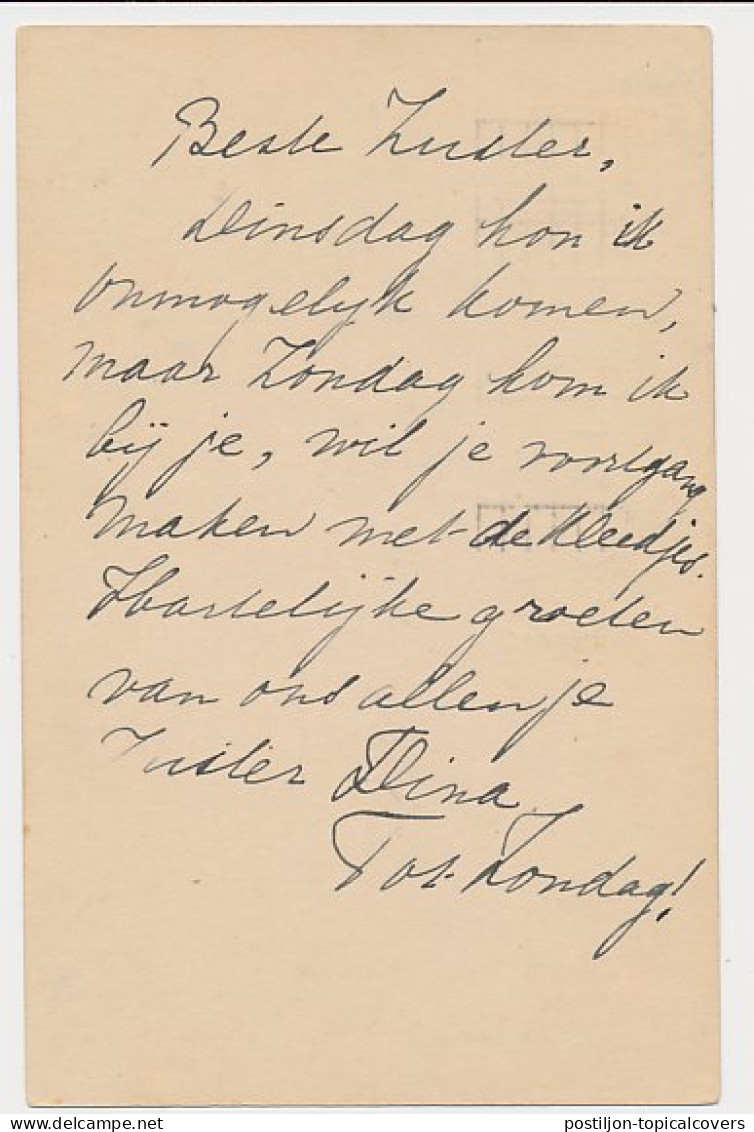 Beste Zuster,
Dinsdag kon ik
onmogelijk komen,
maar Zondag kom ik
bij je, wil je voortgang
maken met de kleedjes.
Hartelijke groeten
van ons allen je
Zuster Dina
Tot Zondag!
delcampe.net
postiljon-topicalcovers